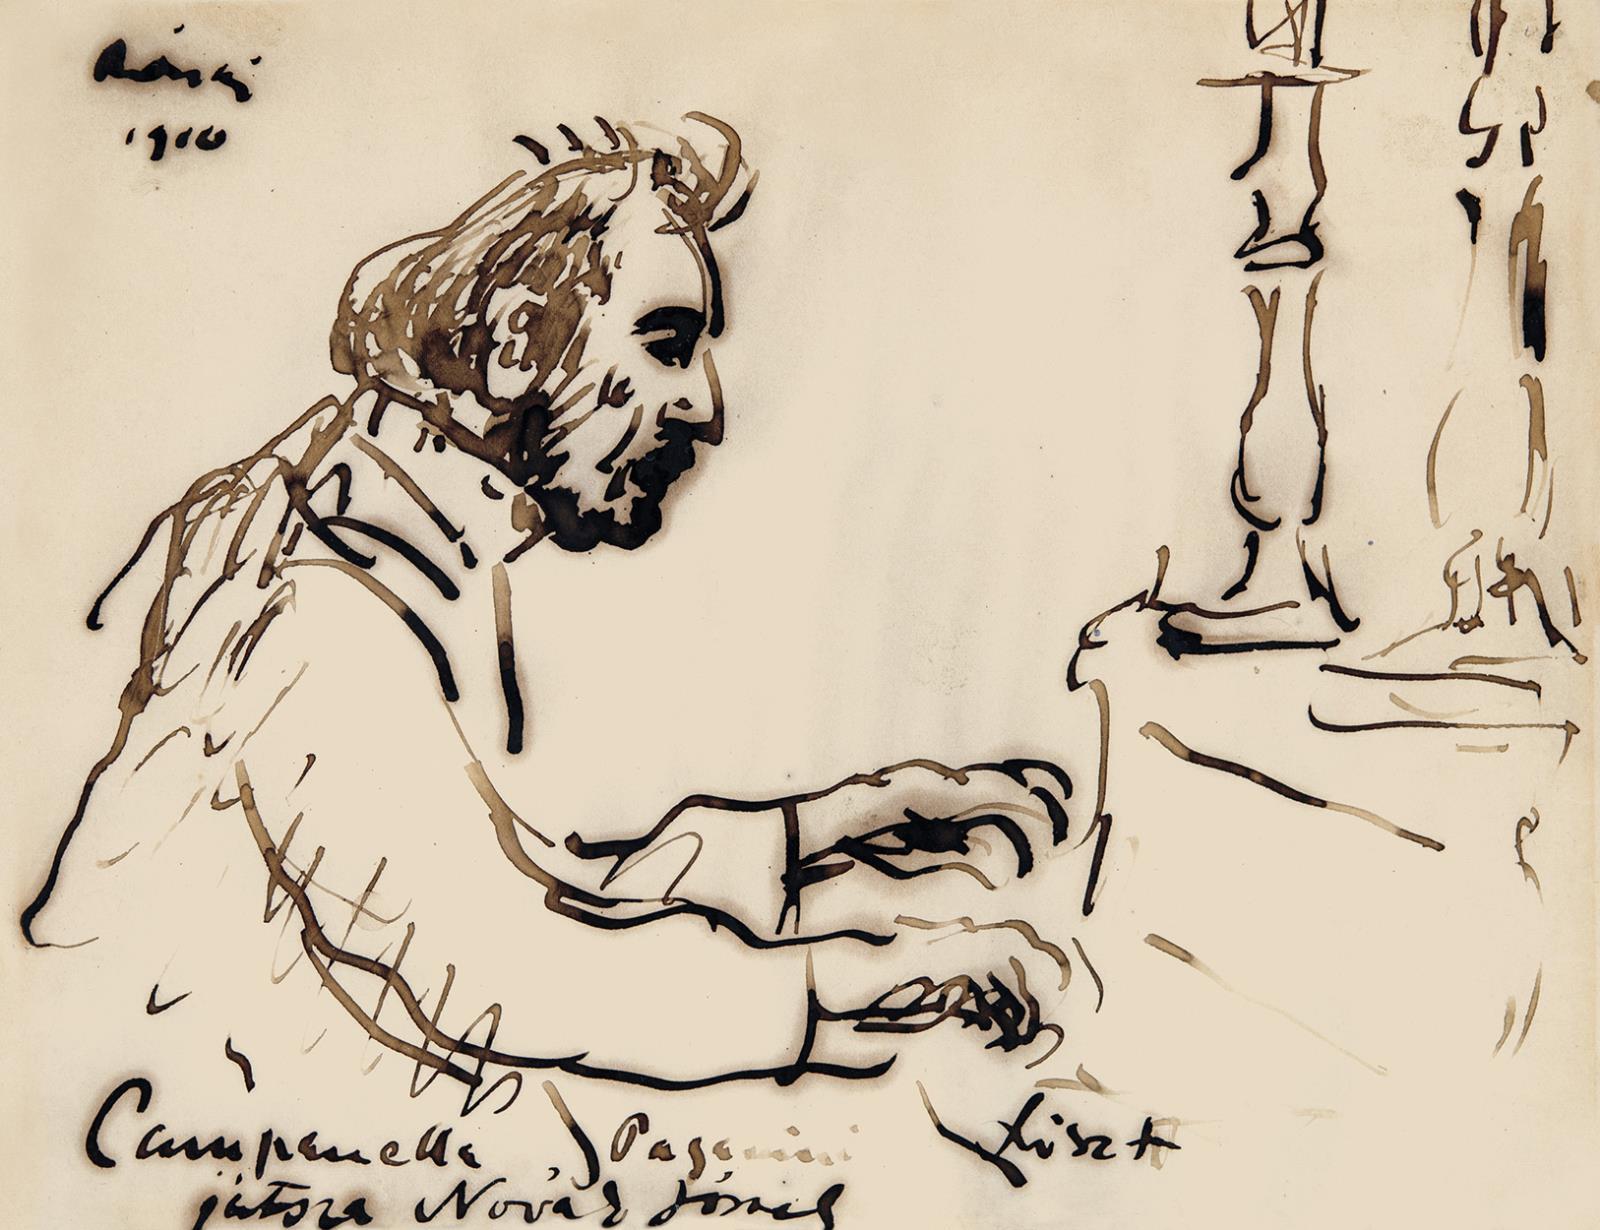 Rónai
1910
Campanella Paganini Liszt
játsza Novák József